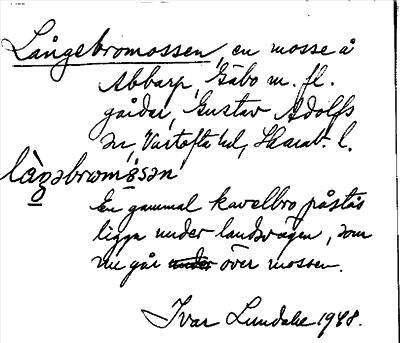 Långebromossen, en mosse å
Abbarp, Gäbo m. fl.
gårdar, Gustav Adolfs
sn, Vartofta hd, Skarab. l.
làŋəbromòsən
En gammal kavelbro påstås
ligga under landsvägen, som
nu går under över mossen.
Ivar Lundahl 1948.